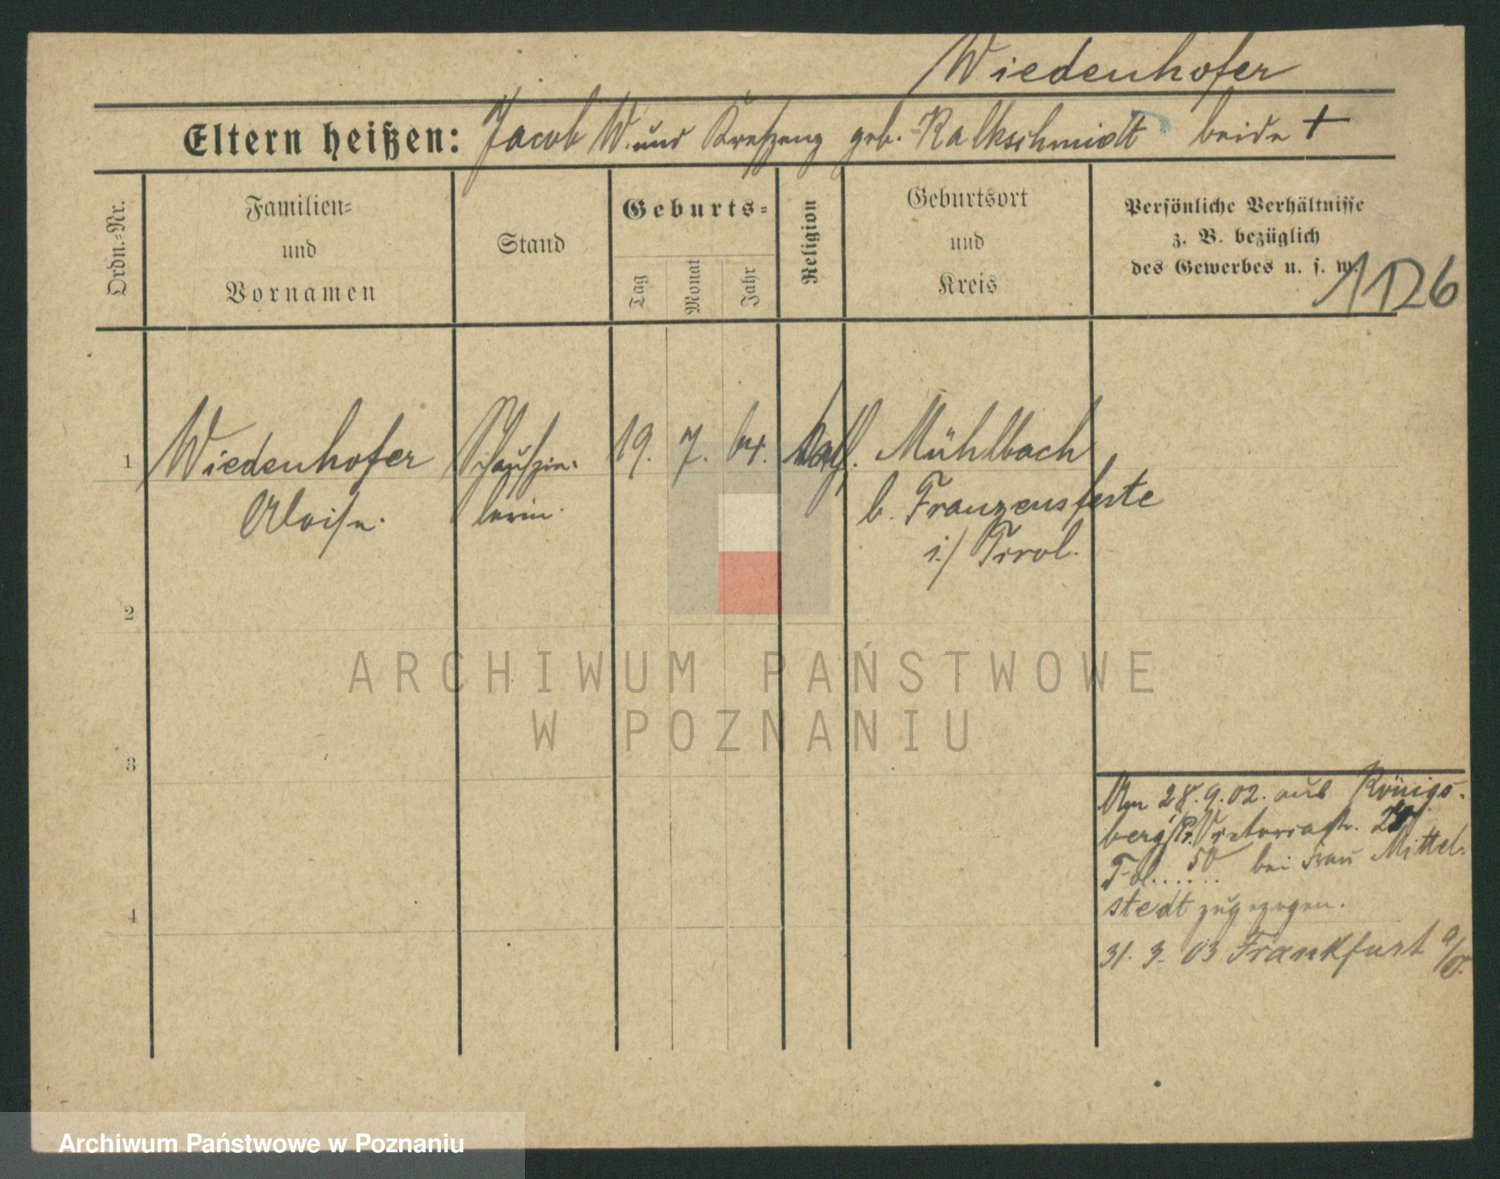 Wiedenhofer
Eltern heißen: Jacob W. und Kreszenz geb. Kalkschmidt beide +
Ordn.-Nr.
Familien-
und
Vornamen
Stand
Geburts-
Tag
Monat
Jahr
Religion
Geburtsort
und
Kreis
Persönliche Verhältnisse
z. B. bezüglich
des Gewerbes u. s. w.
1126
1 Wiedenhofer Schauspie- 19. 7. 64. kath. Mühlbach
Aloise. lerin. b. Franzensfeste
i./ Tirol.
2
ARCHIWUM PAŃSTWOWE
W POZNANIU
3
Am 28.9.02. aus Königs-
berg/Pr. Victoriastr.
50 bei Frau Mittel-
4
stedt zugezogen.
31. 3. 03 Frankfurt a/O.
Archiwum Państwowe w Poznaniu